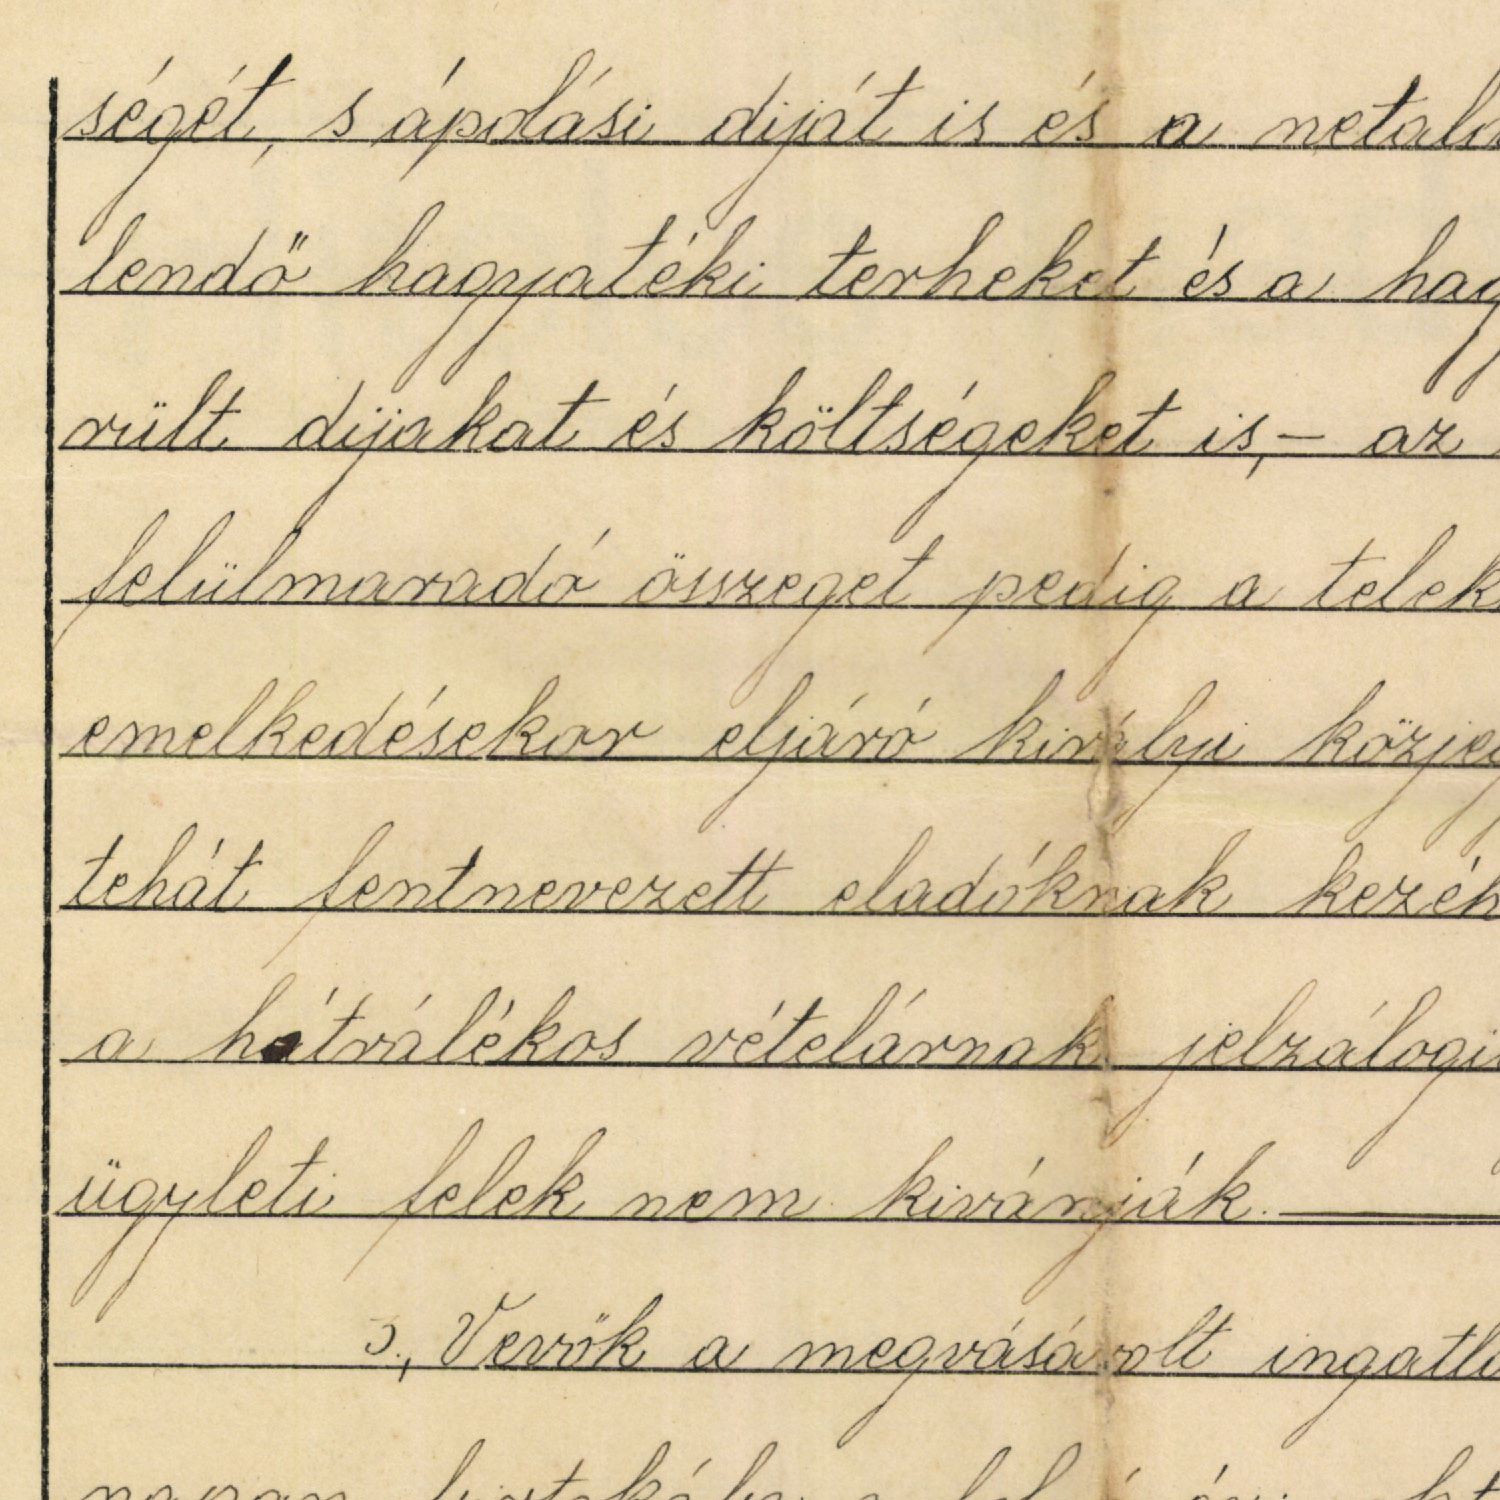 ségét, s ápolási diját is és a netalá
lendő hagyatéki terheket és a hagy
rült dijakat és költségeket is,— az
felülmaradó összeget pedig a telek
emelkedésekor eljáró királyi közjeg
tehát fentnevezett eladóknak kezéh
a hátrálékos vételárnak jelzálogi
ügyleti felek nem kivánják.
3., Vevők a megvásárolt ingatla
napon birtokába